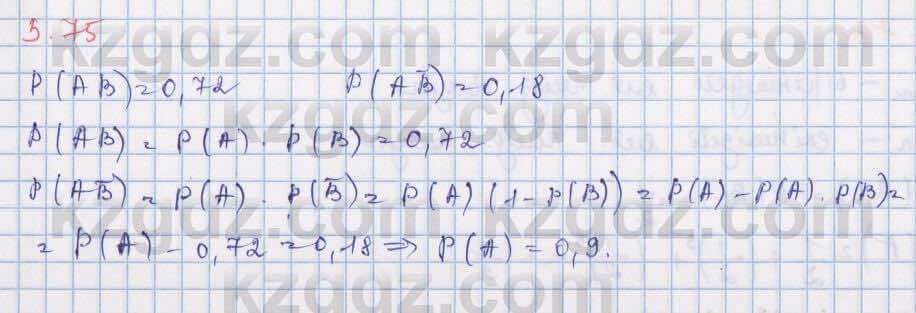 3.75
P(AB)=0,72 P(AB̄)=0,18
P(AB) = P(A) · P(B) = 0,72
P(AB̄) = P(A) · P(B̄) = P(A) (1 - P(B)) = P(A) - P(A) · P(B) =
= P(A) - 0,72 = 0,18 ⇒ P(A) = 0,9.
kzgdz.com kzgdz.com
kzgdz.com kzgdz.com
kzgdz.com kzgdz.com